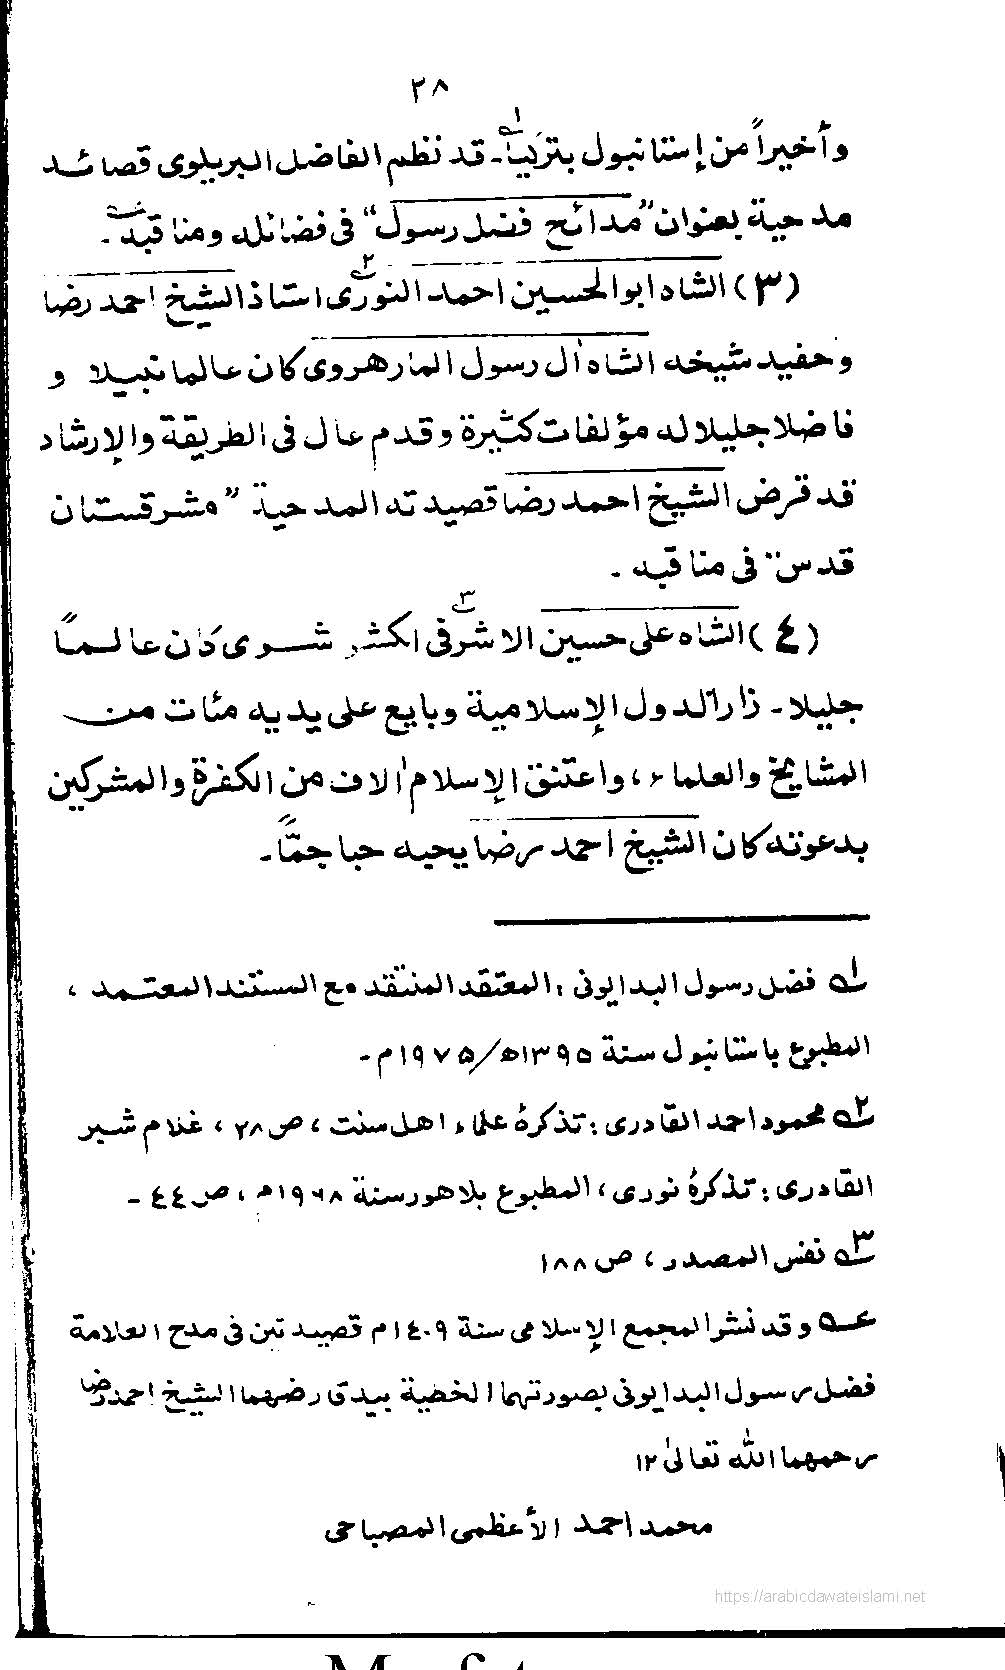 ٢٨
وأخيراً من إستانبول بتركيا۔ قد نظم الفاضل البريلوى قصائد
مدحية بعنوان "مدائح فضل رسول" فى فضائله ومناقبه۔
(٣) الشاه ابوالحسين احمد النورى استاذ الشيخ احمد رضا
وحفيد شيخه الشاه اٰل رسول المارهروى كان عالما نبيلا و
فاضلا جليلا له مؤلفات كثيرة وقدم عال فى الطريقة والإرشاد
قد قرض الشيخ احمد رضا قصيدته المدحية "مشرقستان
قدس" فى مناقبه۔
(٤) الشاه على حسين الاشرفى الكشوشوى كان عالماً
جليلا۔ زار الدول الإسلامية وبايع على يديه مئات من
المشايخ والعلماء، واعتنق الإسلام اٰلاف من الكفرة والمشركين
بدعوته كان الشيخ احمد رضا يحبه حبا جمًّا۔
١ فضل رسول البدايونى : المعتقد المنتقد مع المستند المعتمد ،
المطبوع باستانبول سنة ١٣٩٥ه/١٩٧٥م۔
٢ محمود احمد القادرى : تذكرۂ علماء اهل سنت ، ص ٢٨ ، غلام شبر
القادرى : تذكرۂ نورى ، المطبوع بلاهور سنة ١٩٦٨م ، ص ٤٤۔
٣ نفس المصدر ، ص ١٨٨
عه وقد نشر المجمع الإسلامى سنة ١٤٠٩م قصيدتين فى مدح العلامة
فضل رسول البدايونى بصورتهما الخطية بيدى رضهما الشيخ احمد رضا
رحمهما الله تعالىٰ ١٢
محمد احمد الأعظمى المصباحى
https://arabicdawateislami.net